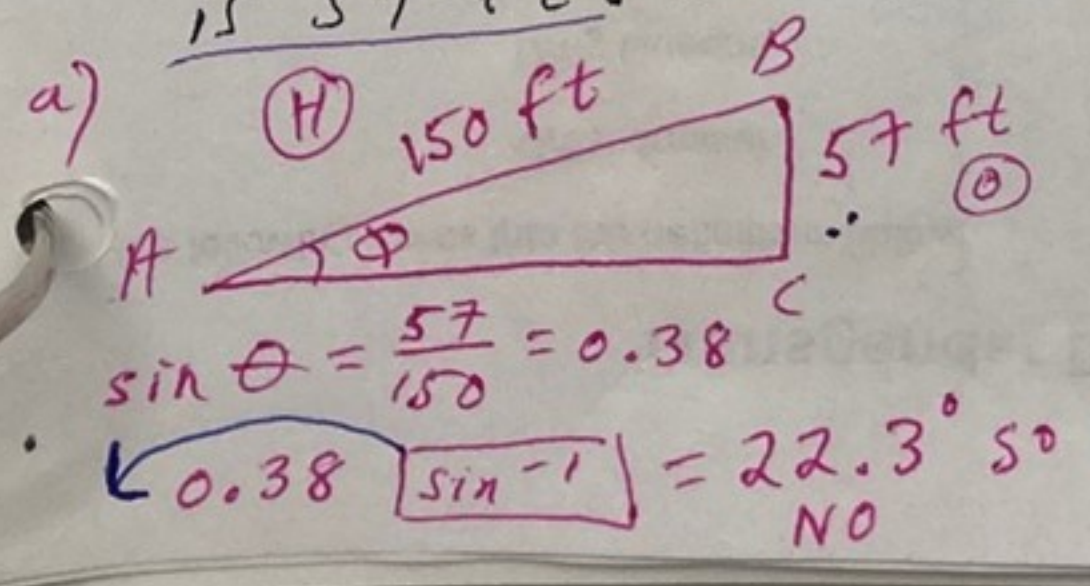 a)
H 150 ft B
57 ft
O
A Φ
C
sin θ = 57/150 = 0.38
0.38 sin⁻¹ = 22.3° so
NO